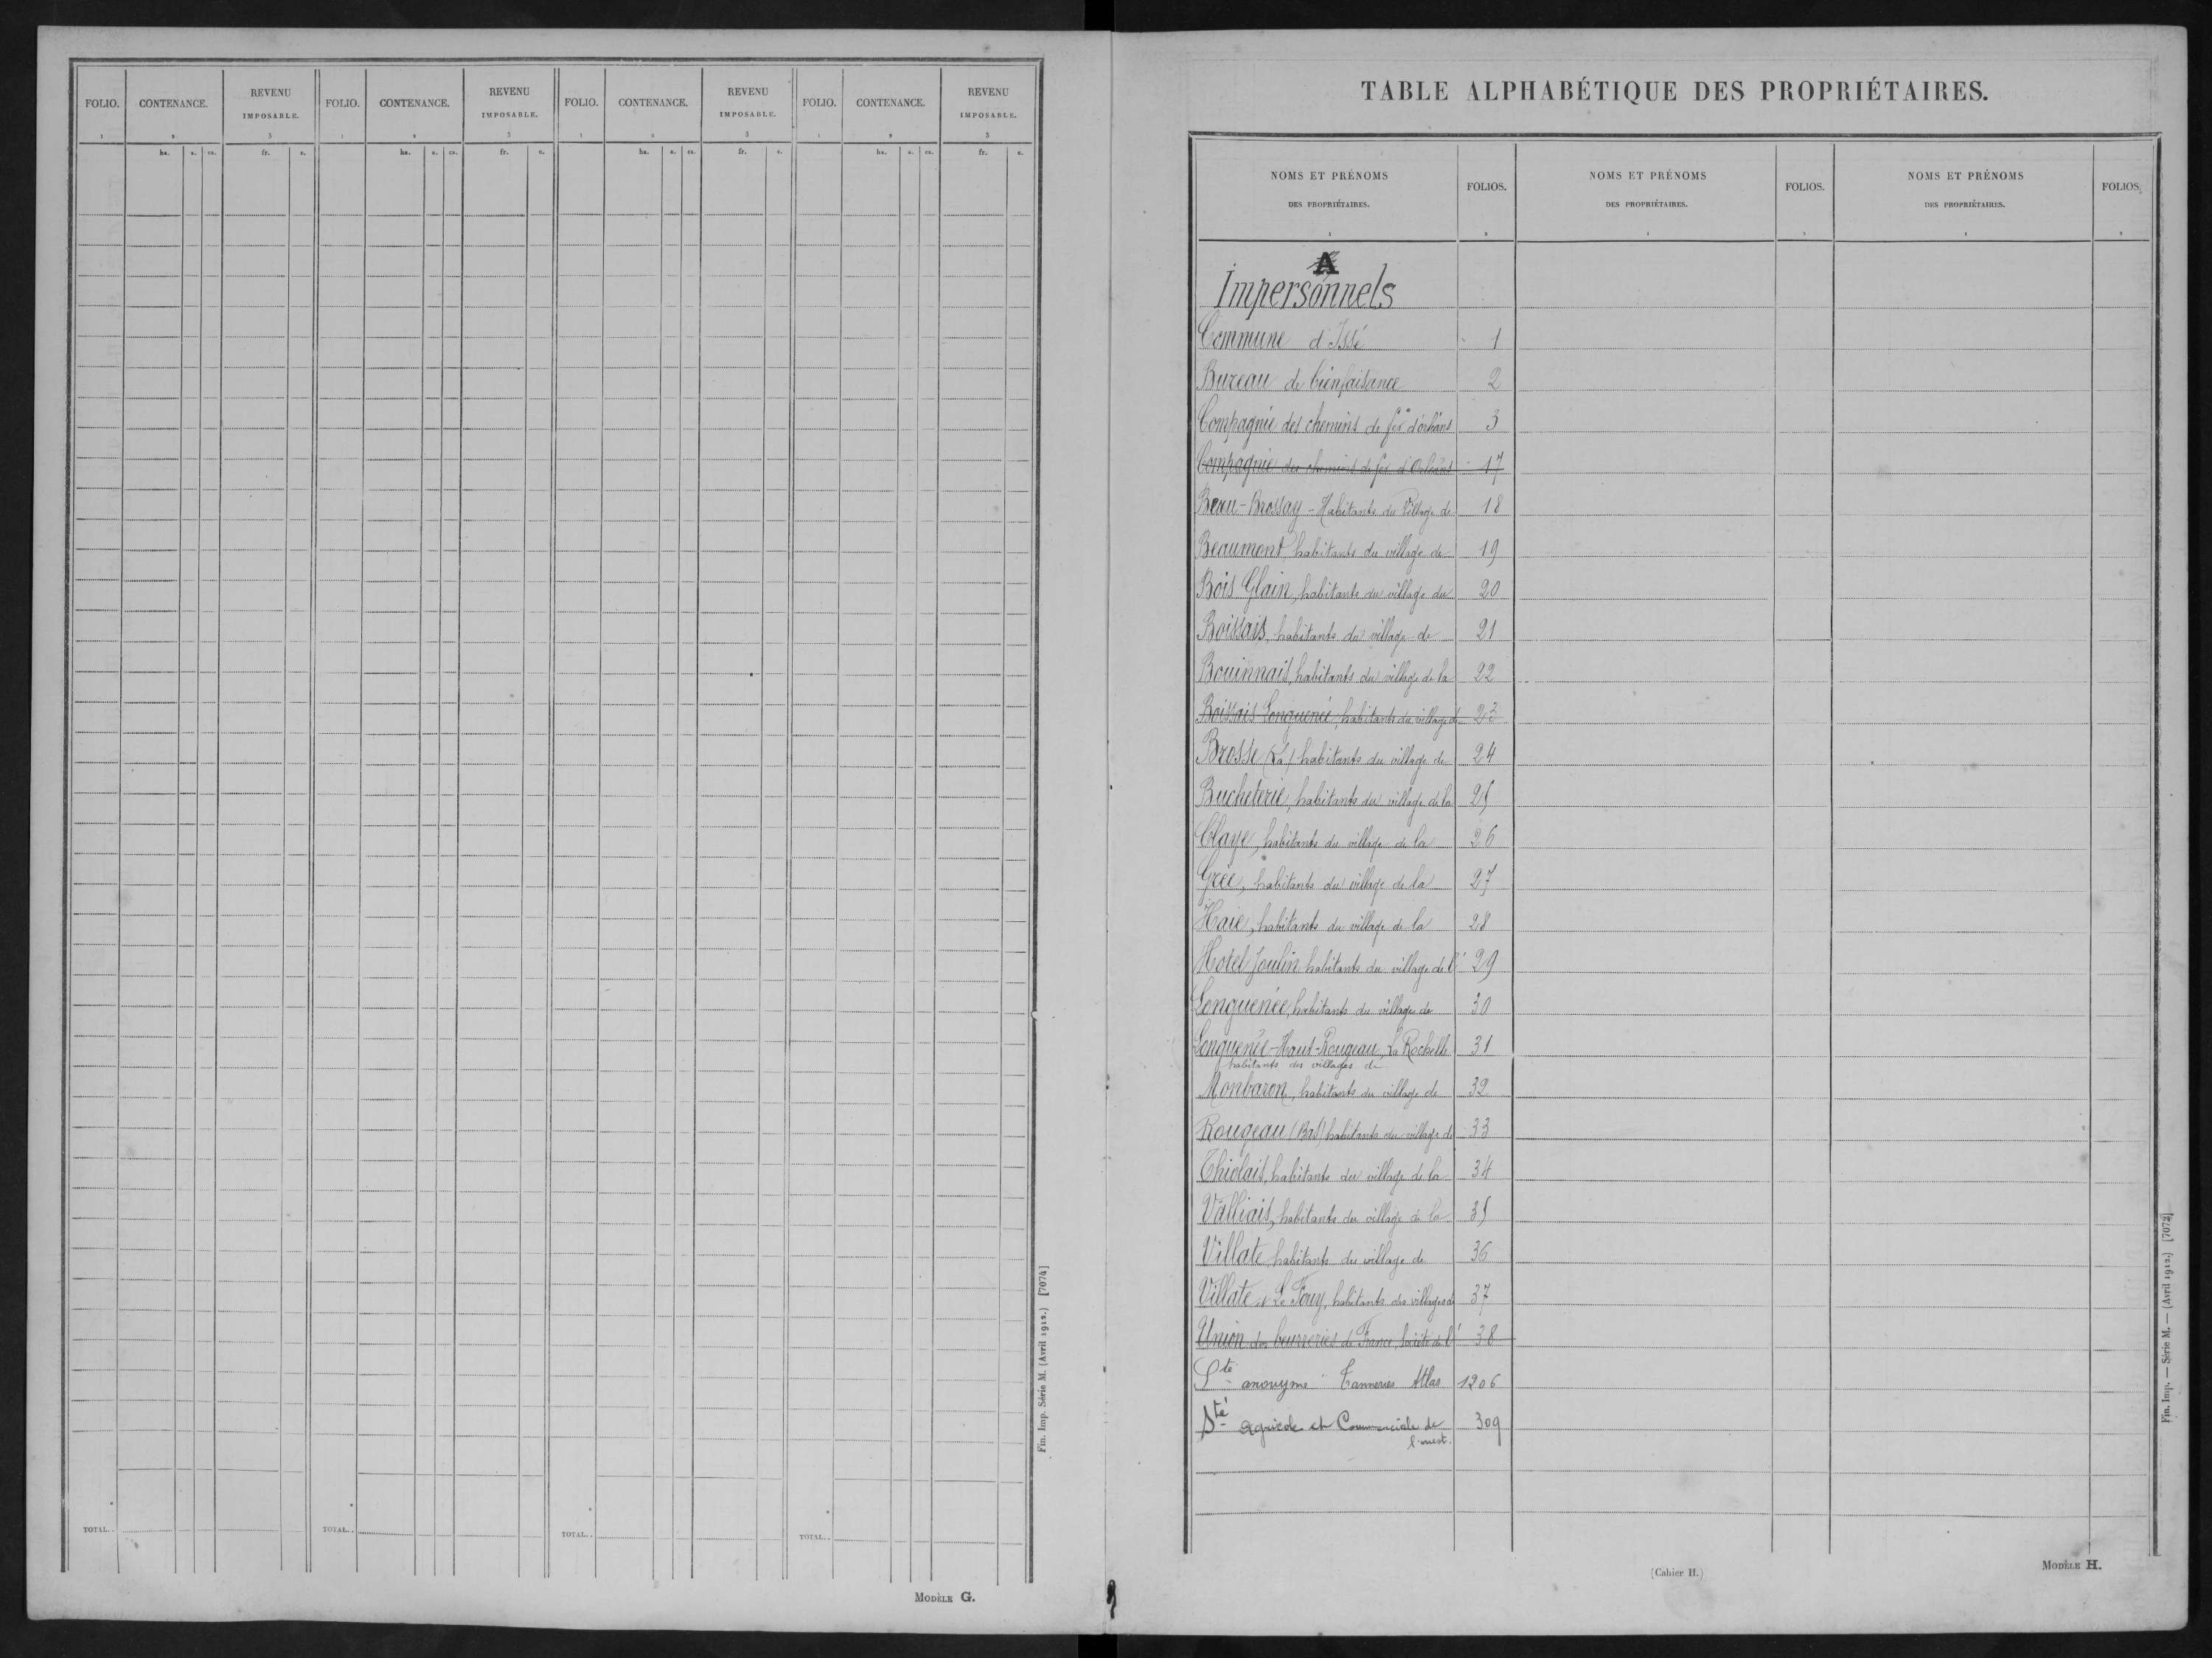 FOLIO. CONTENANCE. REVENU IMPOSABLE. FOLIO. CONTENANCE. REVENU IMPOSABLE. FOLIO. CONTENANCE. REVENU IMPOSABLE. FOLIO. CONTENANCE. REVENU IMPOSABLE.
1 2 3 1 2 3 1 2 3 1 2 3
ha. a. ca. fr. c. ha. a. ca. fr. c. ha. a. ca. fr. c. ha. a. ca. fr. c.
TOTAL.. TOTAL.. TOTAL.. TOTAL..
MODÈLE G.
Fin. Imp. Série M. (Avril 1912.) [7074]
TABLE ALPHABÉTIQUE DES PROPRIÉTAIRES.
NOMS ET PRÉNOMS DES PROPRIÉTAIRES. FOLIOS. NOMS ET PRÉNOMS DES PROPRIÉTAIRES. FOLIOS. NOMS ET PRÉNOMS DES PROPRIÉTAIRES. FOLIOS.
1 2 1 2 1 2
A
Impersonnels
Commune d'Issé 1
Bureau de bienfaisance 2
Compagnie des chemins de fer d'orléans 3
Compagnie des chemins de fer d'Orléans 17
Beau-Brossay - Habitants du Village de 18
Beaumont, habitants du village de 19
Bois Glain, habitants du village du 20
Boissais, habitants du village de 21
Bouinnais, habitants du village de la 22
Boissais Longuenée, habitants du village de 23
Brosse (La) habitants du village de 24
Bucheterie, habitants du village de la 25
Claye, habitants du village de la 26
Grée, habitants du village de la 27
Haie, habitants du village de la 28
Hotel Joulin habitants du village de l' 29
Longuenée, habitants du village de 30
Longuenée-Haut-Rougeau, La Rochelle 31
habitants des villages de
Monbaron, habitants du village de 32
Rougeau (Bas) habitants du village de 33
Thiolais, habitants du village de la 34
Valliais, habitants du village de la 35
Villate habitants du village de 36
Villate et Le Fouy, habitants des villages de 37
Union des beurreries de France, Société de l' 38
Sté anonyme Tanneries Atlas 1206
Sté Agricole et Commerciale de 309
l'ouest.
(Cahier H.)
MODÈLE H.
Fin. Imp. — Série M. — (Avril 1912.) [7072]